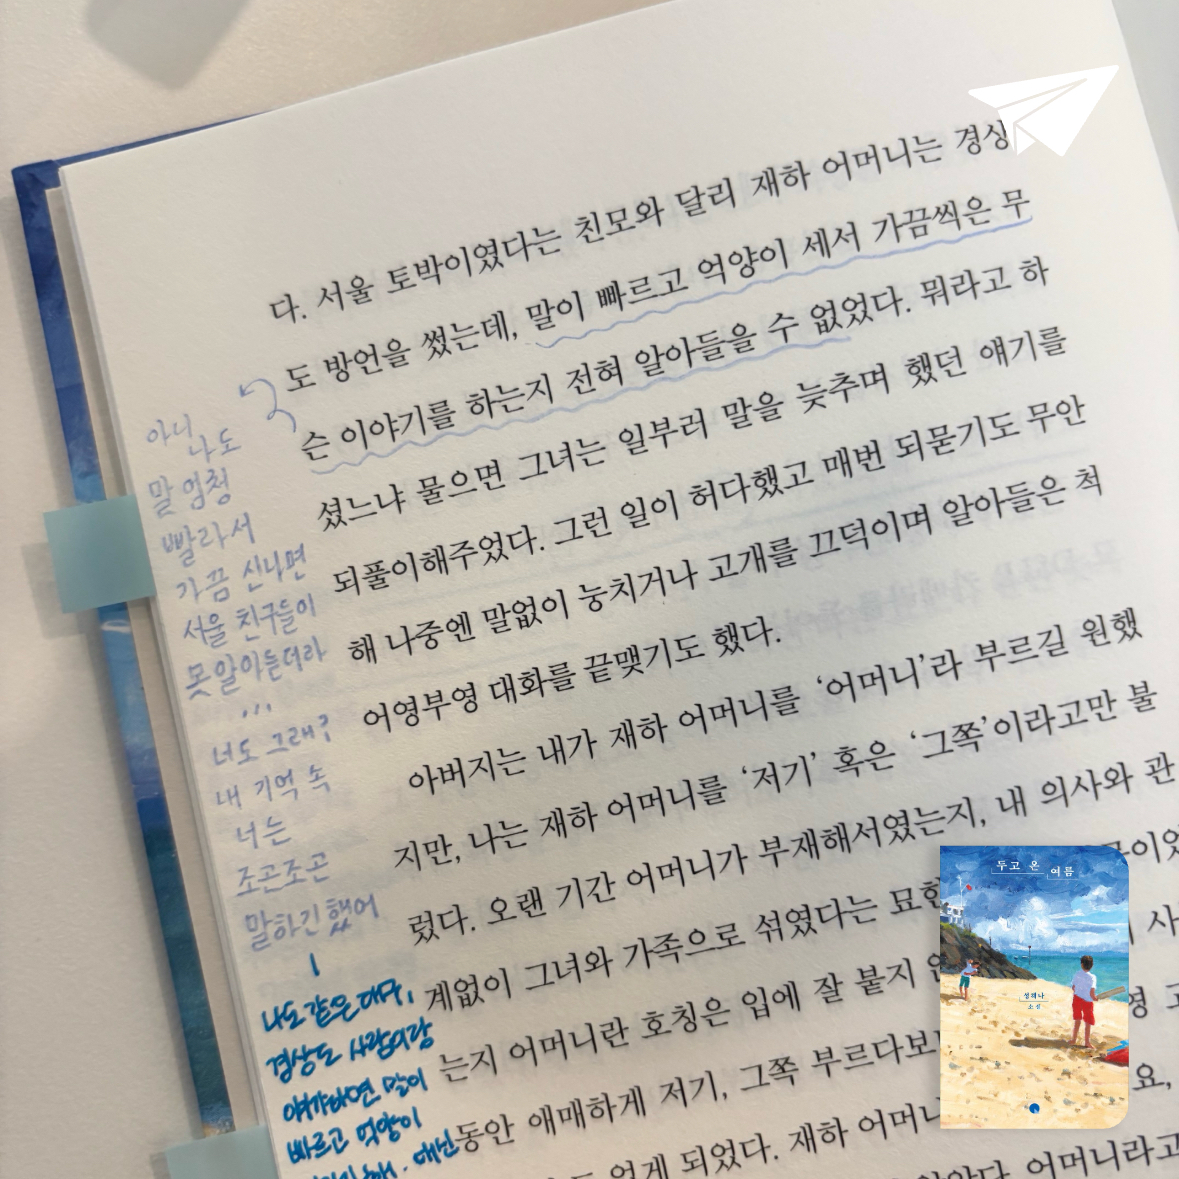 다. 서울 토박이였다는 친모와 달리 재하 어머니는 경상
도 방언을 썼는데, 말이 빠르고 억양이 세서 가끔씩은 무
슨 이야기를 하는지 전혀 알아들을 수 없었다. 뭐라고 하
셨느냐 물으면 그녀는 일부러 말을 늦추며 했던 얘기를
되풀이해주었다. 그런 일이 허다했고 매번 되묻기도 무안
해 나중엔 말없이 눙치거나 고개를 끄덕이며 알아들은 척
어영부영 대화를 끝맺기도 했다.
아버지는 내가 재하 어머니를 ‘어머니’라 부르길 원했
지만, 나는 재하 어머니를 ‘저기’ 혹은 ‘그쪽’이라고만 불
렀다. 오랜 기간 어머니가 부재해서였는지, 내 의사와 관
계없이 그녀와 가족으로 섞였다는
는지 어머니란 호칭은 입에 잘 붙지
동안 애매하게 저기, 그쪽 부르다보
없게 되었다. 재하 어머니
어머니라고
아니
나도
말 엄청
빨라서
가끔 신나면
서울 친구들이
못 알아듣더라
...
너도 그래?
내 기억 속
너는
조곤조곤
말하긴 했어
나도 같은 대구,
경상도 사람이랑
얘기하면 말이
빠르고 억양이
대신
두고 온 여름
성해나
소설